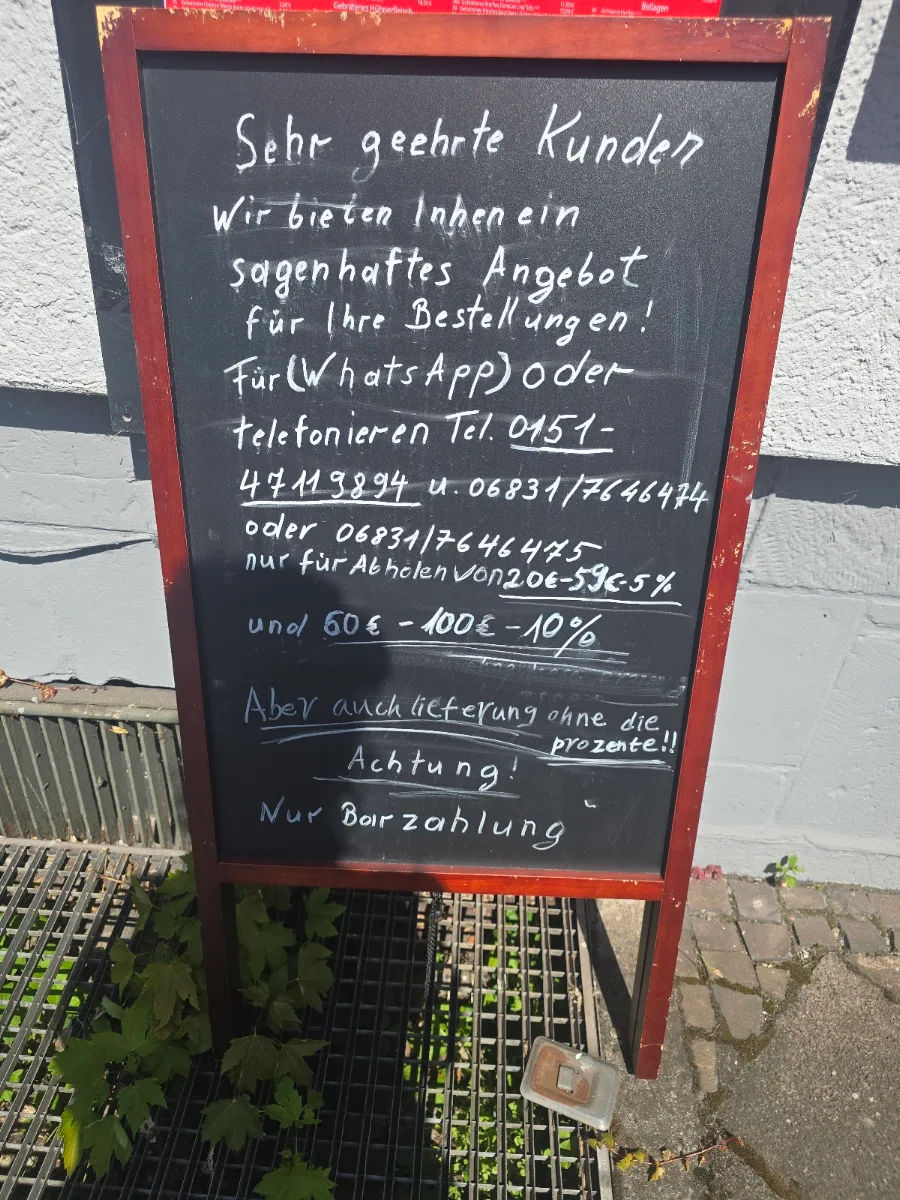 Gebratenes Hühnerfleisch
Beilagen
Sehr geehrte Kunden
Wir bieten Inhen ein
sagenhaftes Angebot
für Ihre Bestellungen!
Für (WhatsApp) oder
telefonieren Tel. 0151-
47119894 u. 06831/7646474
oder 06831/7646475
nur für Abholen von 20€-59€-5%
und 60€ - 100€ - 10%
Aber auch lieferung ohne die
prozente!!
Achtung!
Nur Barzahlung